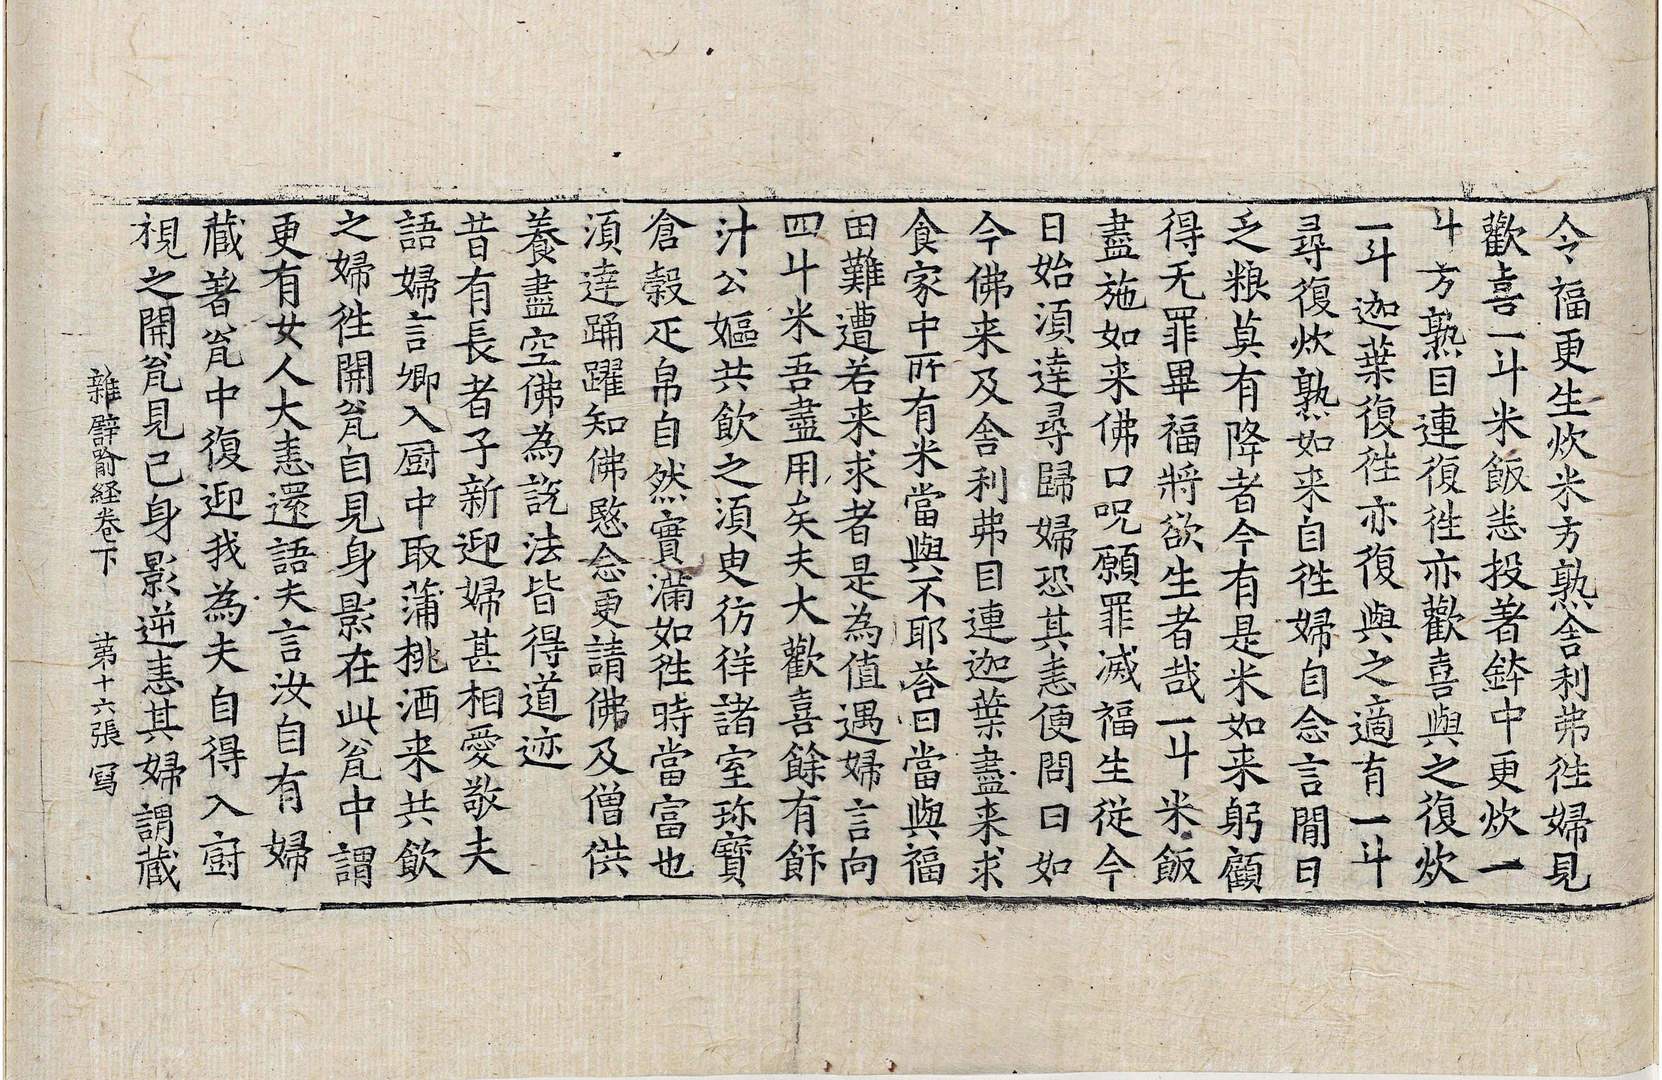 令福更生炊米方熟舎利弗徃婦見
歡喜一斗米飯悉投著鉢中更炊一
斗方熟目連復徃亦歡喜與之復炊
一斗迦葉復徃亦復與之適有一斗
尋復炊熟如来自徃婦自念言間日
乏粮莫有降者今有是米如来躬顧
得无罪畢福將欲生者哉一斗米飯
盡施如来佛口呪願罪滅福生從今
日始湏達尋歸婦恐其恚便問曰如
今佛来及舎利弗目連迦葉盡来求
食家中所有米當與不耶荅曰當與福
田難遭若来求者是為值遇婦言向
四斗米吾盡用矣夫大歡喜餘有飰
汁公嫗共飲之湏臾彷徉諸室珎寶
倉穀疋帛自然實滿如徃時當富也
湏達踊躍知佛愍念更請佛及僧供
養盡空佛為說法皆得道迹
昔有長者子新迎婦甚相愛敬夫
語婦言卿入厨中取蒲桃酒来共飲
之婦徃開瓮自見身影在此瓮中謂
更有女人大恚還語夫言汝自有婦
藏著瓮中復迎我為夫自得入厨
視之開瓮見己身影逆恚其婦謂藏
雜譬喻経卷下　第十六張　寫